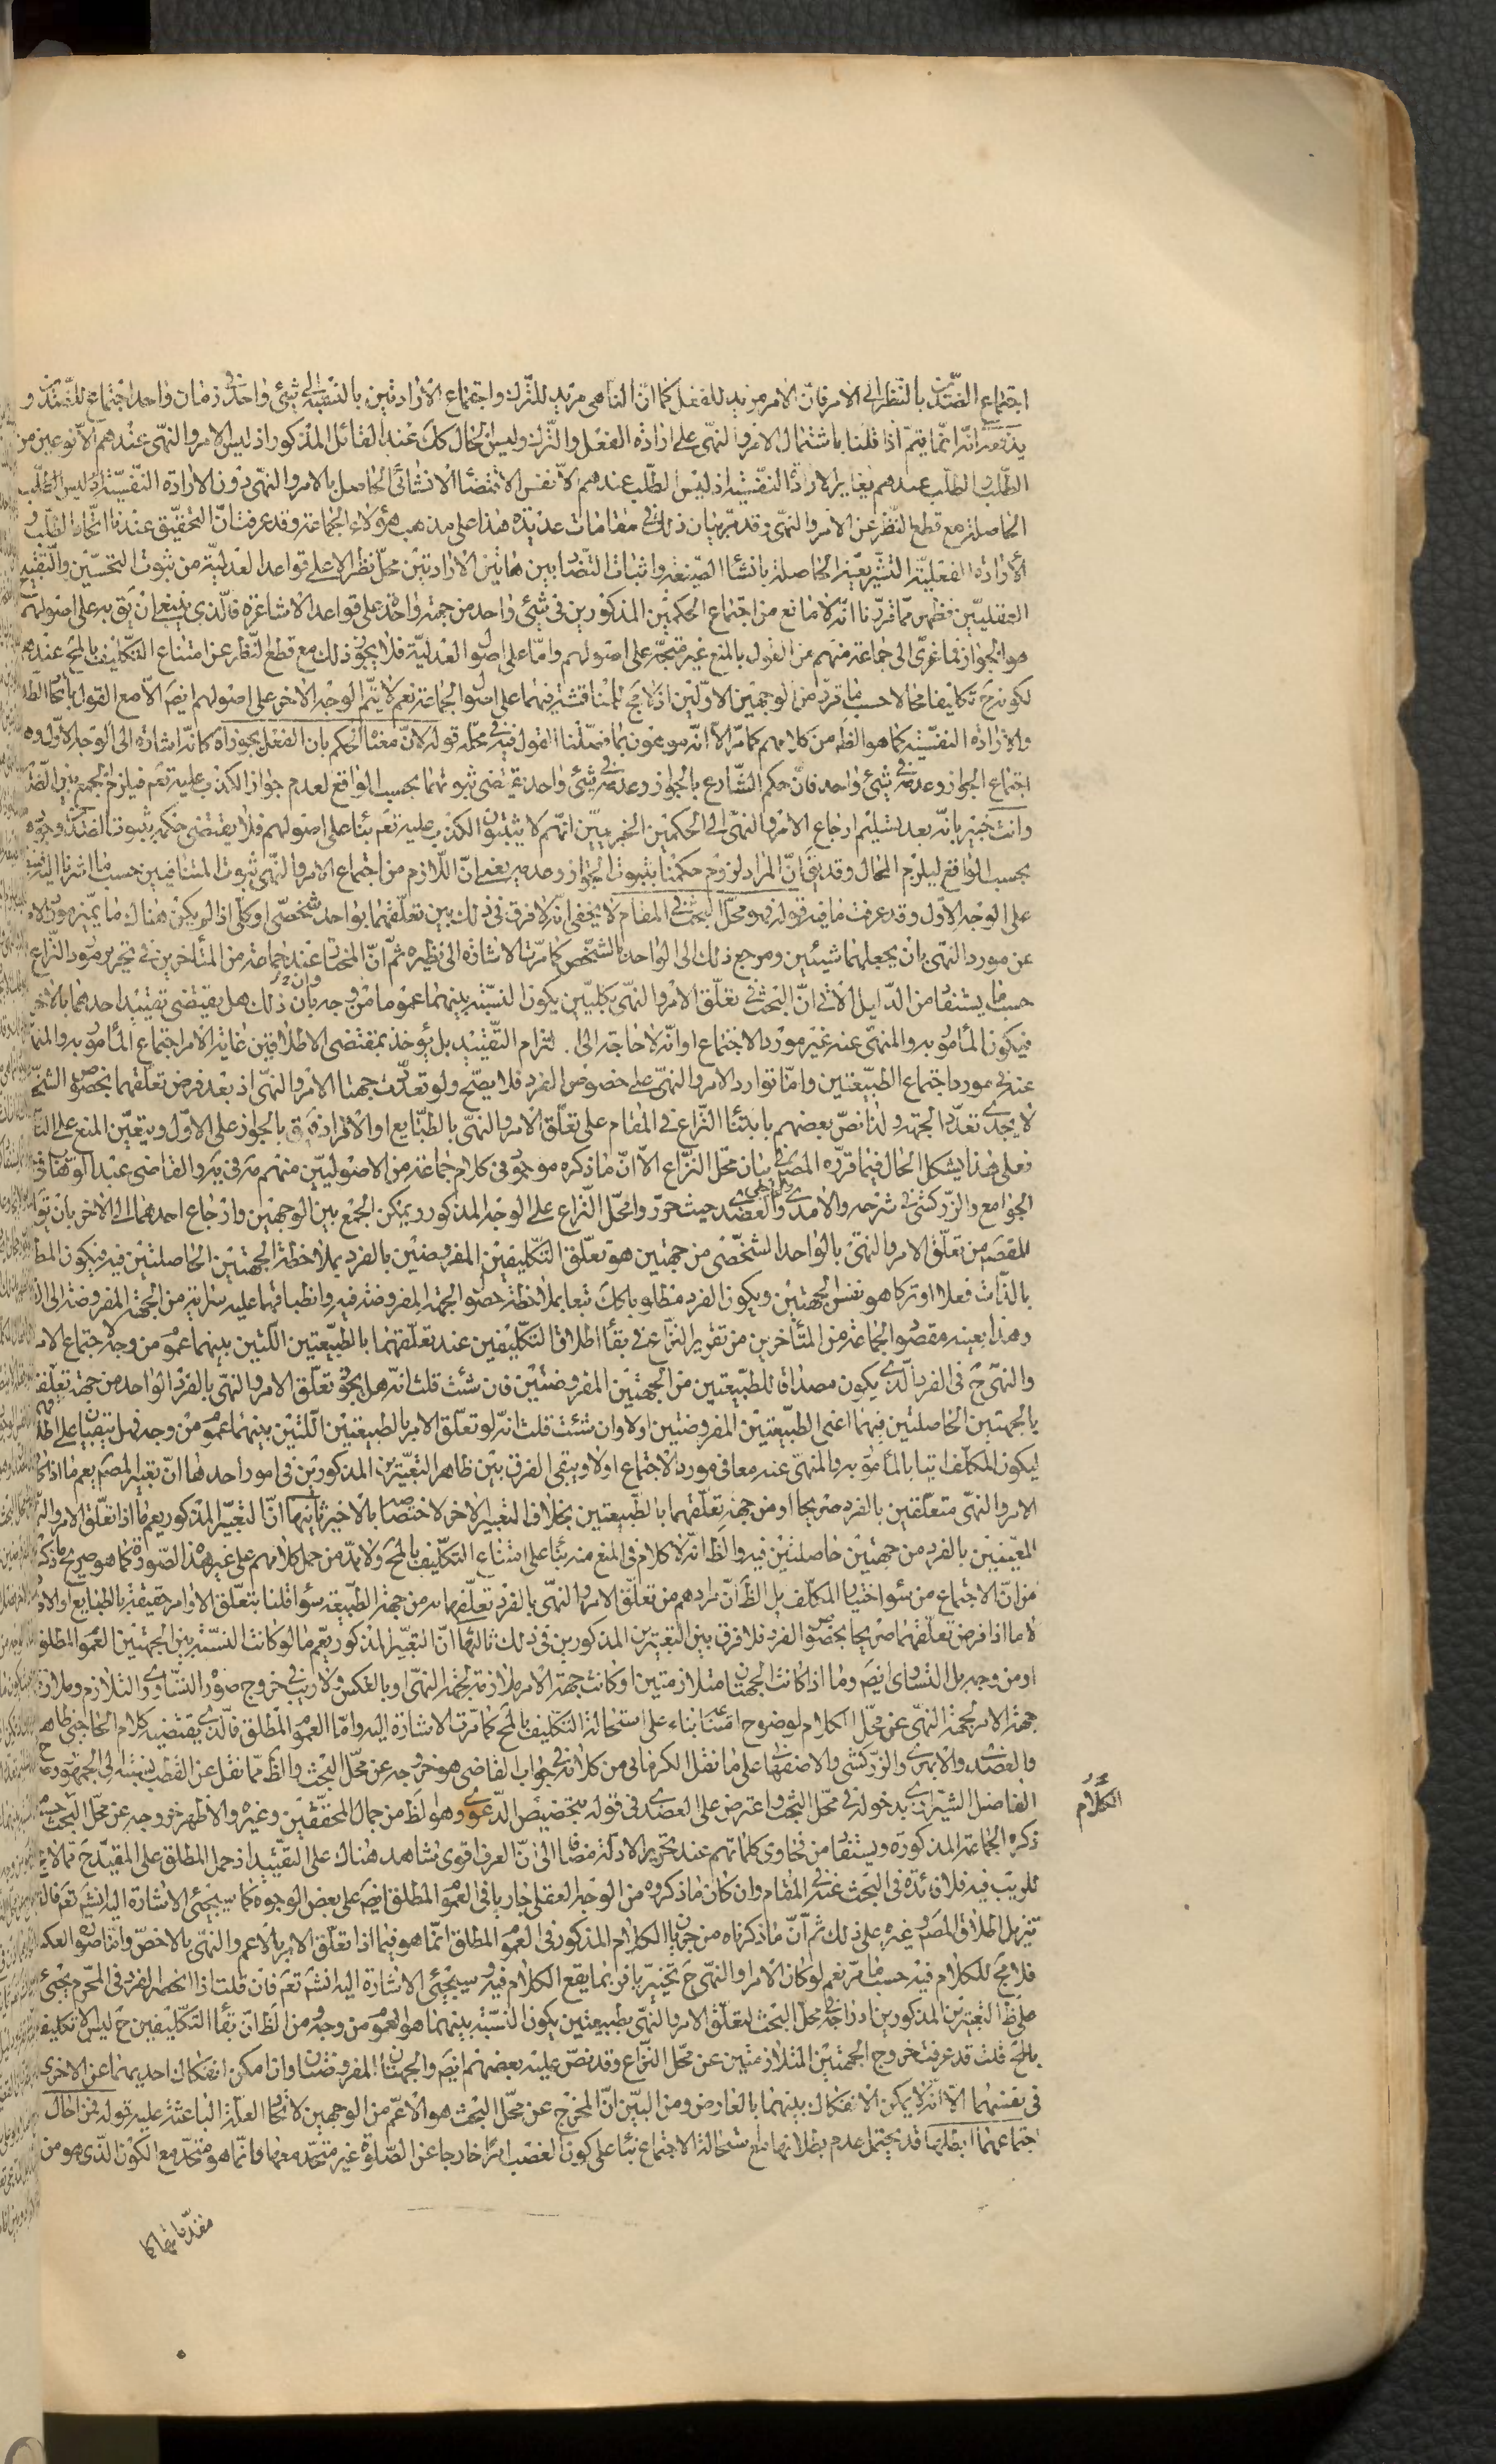 اجتماع الضدين بالنظر الى الامر فان الامر مريد للفعل كما ان الناهى مريد للترك واجتماع الارادتين بالنسبة الى شئ واحد فى زمان واحد اجتماع للضدين و
يدفعه انه انما يتم اذا قلنا باشتمال الامر والنهى على ارادة الفعل والترك وليس الحال كك عند القائل المذكور اذ ليس الامر والنهى عندهم الا نوعين من
الطلب والطلب عندهم يغاير الارادة النفسية اذ ليس الطلب عندهم الا نفس الاقتضاء الانشائى الحاصل بالامر والنهى دون الارادة النفسية اذ ليس الطلب
الحاصلة مع قطع النظر عن الامر والنهى وقد مر بيان ذلك فى مقامات عديدة هذا على مذهب هؤلاء الجماعة وقد عرفت ان التحقيق عندنا اتحاد الطلب و
الارادة الفعلية التشريعية الحاصلة بانشاء الصيغة واثبات التضاد بين هاتين الارادتين محل نظر الا على قواعد العدلية من ثبوت التحسين والتقبيح
العقليين فظهر مما قررنا انه لا مانع من اجتماع الحكمين المذكورين فى شئ واحد من جهة واحدة على قواعد الاشاعرة فالذى ينبغى ان يق به على اصولهم
هو الجواز فما عزى الى جماعة منهم من القول بالمنع غير متجه على اصولهم واما على اصول العدلية فلا يجوز ذلك مع قطع النظر عن امتناع التكليف بالمح عندهم
لكونه ح تكليفا محالا حسب ما قرر من الوجهين الاولين اذ لا مجال للمناقشة فيهما على اصول الجماعة نعم لا يتم الوجه الاخر على اصولهم ايضا الا مع القول باتحاد الطلب
والارادة النفسية كما هو الظ من كلامهم كما مر الا انه موهون بما فصلنا القول فيه فى محله قوله لان معناه الحكم بان الفعل يجوز اه كانه اشارة الى الوجه الاول وهو
اجتماع الجواز وعدمه فى شئ واحد فان حكم الشارع بالجواز وعدمه فى شئ واحد يقتضى ثبوتهما بحسب الواقع لعدم جواز الكذب عليه تعم فيلزم الجمع بين الضدين
وانت خبير بانه بعد تسليم ارجاع الامر والنهى الى الحكمين الخبريين انهم لا يثبتون الكذب عليه تعم بناء على اصولهم فلا يقتضى حكمه بثبوت الضدين وجوده
بحسب الواقع ليلزم المحال وقد يق ان المراد لزوم حكمنا بثبوت الجواز وعدمه يعنى ان اللازم من اجتماع الامر والنهى ثبوت المتنافيين حسب ما اشرنا اليه
على الوجه الاول وقد عرفت ما فيه قوله وهو محل البحث فى المقام لا يخفى انه لا فرق فى ذلك بين تعلقهما بواحد شخصى او كلى اذا لم يكن هناك ما يميز مورد الامر
عن مورد النهى بان يجعلهما شيئين ومرجع ذلك الى الواحد بالشخص كما مرت الاشارة الى نظيره ثم ان المختار عند جماعة من المتأخرين فى تحرير مورد النزاع
حسب ما يستفاد من الدليل الاتى ان البحث فى تعلق الامر والنهى بكليين يكون النسبة بينهما عموما من وجه وان ذلك هل يقتضى تقييد احدهما بالاخر
فيكون المأمور به والمنهى عنه غير مورد الاجتماع او انه لا حاجة الى التزام التقييد بل يؤخذ بمقتضى الاطلاقين غاية الامر اجتماع المأمور به والمنهى
عنه فى مورد اجتماع الطبيعتين واما توارد الامر والنهى على خصوص الفرد فلا يصح ولو تعددت جهتا الامر والنهى اذ بعد فرض تعلقهما بخصوص الشخص
لا يجدى تعدد الجهة ولذا نص بعضهم بابتناء النزاع فى المقام على تعلق الامر والنهى بالطبايع او الافراد فيق بالجواز على الاول ويتعين المنع على الثانى
فعلى هذا يشكل الحال فيما قرره المصنف فى بيان محل النزاع الا ان ما ذكره موجود فى كلام جماعة من الاصوليين منهم مه فى يه والقاضى عبد الوهاب فى
الجوامع والزركشى فى شرحه والامدى والعضدى حيث حرروا محل النزاع على الوجه المذكور ويمكن الجمع بين الوجهين وارجاع احدهما الى الاخر بان يق ان
المقصود من تعلق الامر والنهى بالواحد الشخصى من جهتين هو تعلق التكليفين المفروضين بالفرد بملاحظة الجهتين الحاصلتين فيه فيكون المطلوب
بالذات فعلا او تركا هو نفس الجهتين ويكون الفرد مطلوبا كك تبعا بملاحظة حصول الجهة المفروضة فيه وانطباقها عليه سراية من الجهة المفروضة الى الفرد
وهذا بعينه مقصود الجماعة من المتأخرين من تقرير النزاع فى بقاء اطلاق التكليفين عند تعلقهما بالطبيعتين اللتين بينهما عموم من وجه لاجتماع الامر
والنهى ح فى الفرد الذى يكون مصداقا للطبيعتين من الجهتين المفروضتين فان شئت قلت انه هل يجوز تعلق الامر والنهى بالفرد الواحد من جهة تعلقهما
بالجهتين الحاصلتين فيهما اعنى الطبيعتين المفروضتين اولا وان شئت قلت انه لو تعلق الامر بالطبيعتين اللتين بينهما عموم من وجه فهل يبقيان على اطلاقهما
ليكون المكلف اتيا بالمأمور به والمنهى عنه معا فى مورد الاجتماع اولا ويبقى الفرق بين ظاهر التعبيرين المذكورين فى امور احدها ان تعبير المصنف يعم ما اذا كان
الامر والنهى متعلقين بالفرد صريحا او من جهة تعلقهما بالطبيعتين بخلاف التعبير الاخر لاختصاصه بالاخير ثانيها ان التعبير المذكور يعم ما اذا تعلق الامر والنهى
المعينين بالفرد من جهتين حاصلتين فيه والظ انه لا كلام فى المنع منه بناء على امتناع التكليف بالمح ولا بد من حمل كلامهم على غير هذه الصورة كما هو صريح ما ذكروه
من ان الاجتماع من سوء اختيار المكلف بل الظ ان مرادهم من تعلق الامر والنهى بالفرد تعلقهما به من جهة الطبيعة سواء قلنا بتعلق الاوامر حقيقة بالطبايع او الافراد
لا ما اذا فرض تعلقهما صريحا بخصوص الفرد فلا فرق بين التعبيرين المذكورين فى ذلك ثالثها ان التعبير المذكور يعم ما لو كانت النسبة بين الجهتين العموم المطلق
او من وجه بل التساوى ايضا وما اذا كانت الجهتان متلازمتين او كانت جهة الامر ملازمة لجهة النهى او بالعكس ولا ريب فى خروج صورة التساوى والتلازم وملازمة
جهة الامر لجهة النهى عن محل الكلام لوضوح امتناعه بناء على استحالة التكليف بالمح كما مرت الاشارة اليه واما العموم المطلق فالذى يقتضيه كلام الحاجبى ظاهر
والعضدى والابهرى والزركشى والاصفهانى على ما نقل الكرمانى من كلامه فى جواب القاضى هو خروجه عن محل البحث والظ مما نقل عن القطب نسبته الى الجمهور
الفاضل الشيرازى بدخوله فى محل البحث واعترض على العضدى فى قوله بتخصيص الدعوى وهو الظ من جمال المحققين وغيره والاظهر خروجه عن محل البحث حسب ما
ذكره الجماعة المذكورة ويستفاد من فحاوى كلماتهم عند تحرير الادلة مضافا الى ان العرف اقوى شاهد هناك على التقييد اذ حمل المطلق على المقيد ح مما لا مجال
للريب فيه فلا فائدة فى البحث عنه فى المقام وان كان ما ذكروه من الوجه العقلى جاريا فى العموم المطلق ايضا على بعض الوجوه كما سيجئ الاشارة اليه انشم تعم فالاولى
تنزيل اطلاق المصنف وغيره على ذلك ثم ان ما ذكرناه من جريان الكلام المذكور فى العموم المطلق انما هو فيما اذا تعلق الامر بالاعم والنهى بالاخص واما صورة العكس
فلا مجال للكلام فيه حسب ما مر نعم لو كان الامر او النهى ح تخييريا فربما يقع الكلام فيه وسيجئ الاشارة اليه انشم تعم فان قلت اذا انحصر الفرد فى المحرم يجئ
على ظ التعبيرين المذكورين ادراجه فى محل البحث لتعلق الامر والنهى بطبيعتين يكون النسبة بينهما هو العموم من وجه ومن الظ ان بقاء التكليفين ح ليس الا تكليفا
بالمح قلت قد عرفت خروج الجهتين المتلازمتين عن محل النزاع وقد نص عليه بعضهم ايضا والجهتان المفروضتان وان امكن انفكاك احديهما عن الاخرى
فى نفسهما الا انه لا يمكن الانفكاك بينهما بالعارض ومن البين ان المخرج عن محل البحث هو الاعم من الوجهين لاتحاد العلة الباعثة عليه قوله فمن احال
اجتماعهما ابطلها قد يحتمل عدم بطلانها مع استحالة الاجتماع بناء على كون الغصب امرا خارجا عن الصلوة غير متحد معها وانما هو متحد مع الكون الذى هو من
الكلام
مقدماتها كا